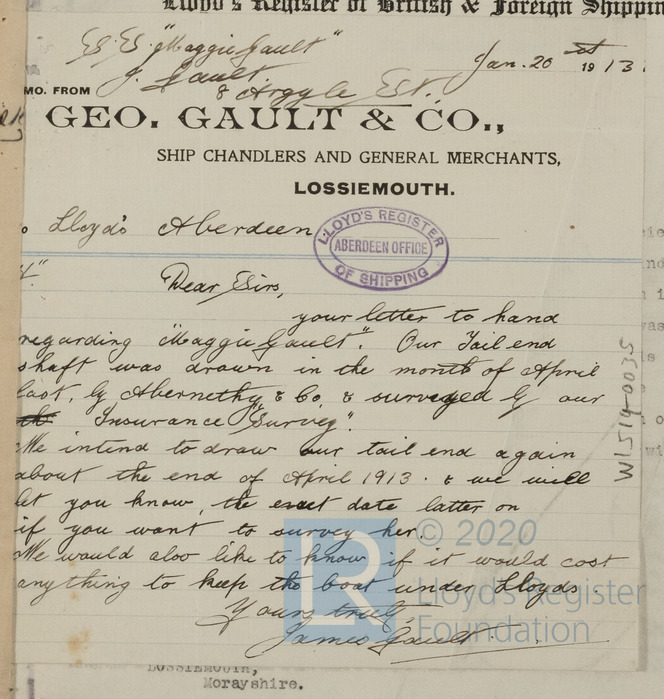 Lloyd's Register of British & Foreign Shippin
SS "Maggie Gault"
J. Gault
8 Argyle St. Jan. 20 1913.
MO. FROM
GEO. GAULT & CO.,
SHIP CHANDLERS AND GENERAL MERCHANTS,
LOSSIEMOUTH.
Lloyd's Aberdeen
LLOYD'S REGISTER
ABERDEEN OFFICE
OF SHIPPING
Dear Sirs,
your letter to hand
regarding "Maggie Gault". Our Tail end
shaft was drawn in the month of April
last, by Abernethy & Co. & surveyed by our
"Insurance Survey".
We intend to draw our tail end again
about the end of April 1913. & we will
let you know, the exact date latter on
if you want to survey her.
We would also like to know if it would cost
anything to keep the boat under Lloyds.
Yours truly,
James Gault
W1519-0035
© 2020
LR Lloyd's Register
Foundation
LOSSIEMOUTH,
Morayshire.